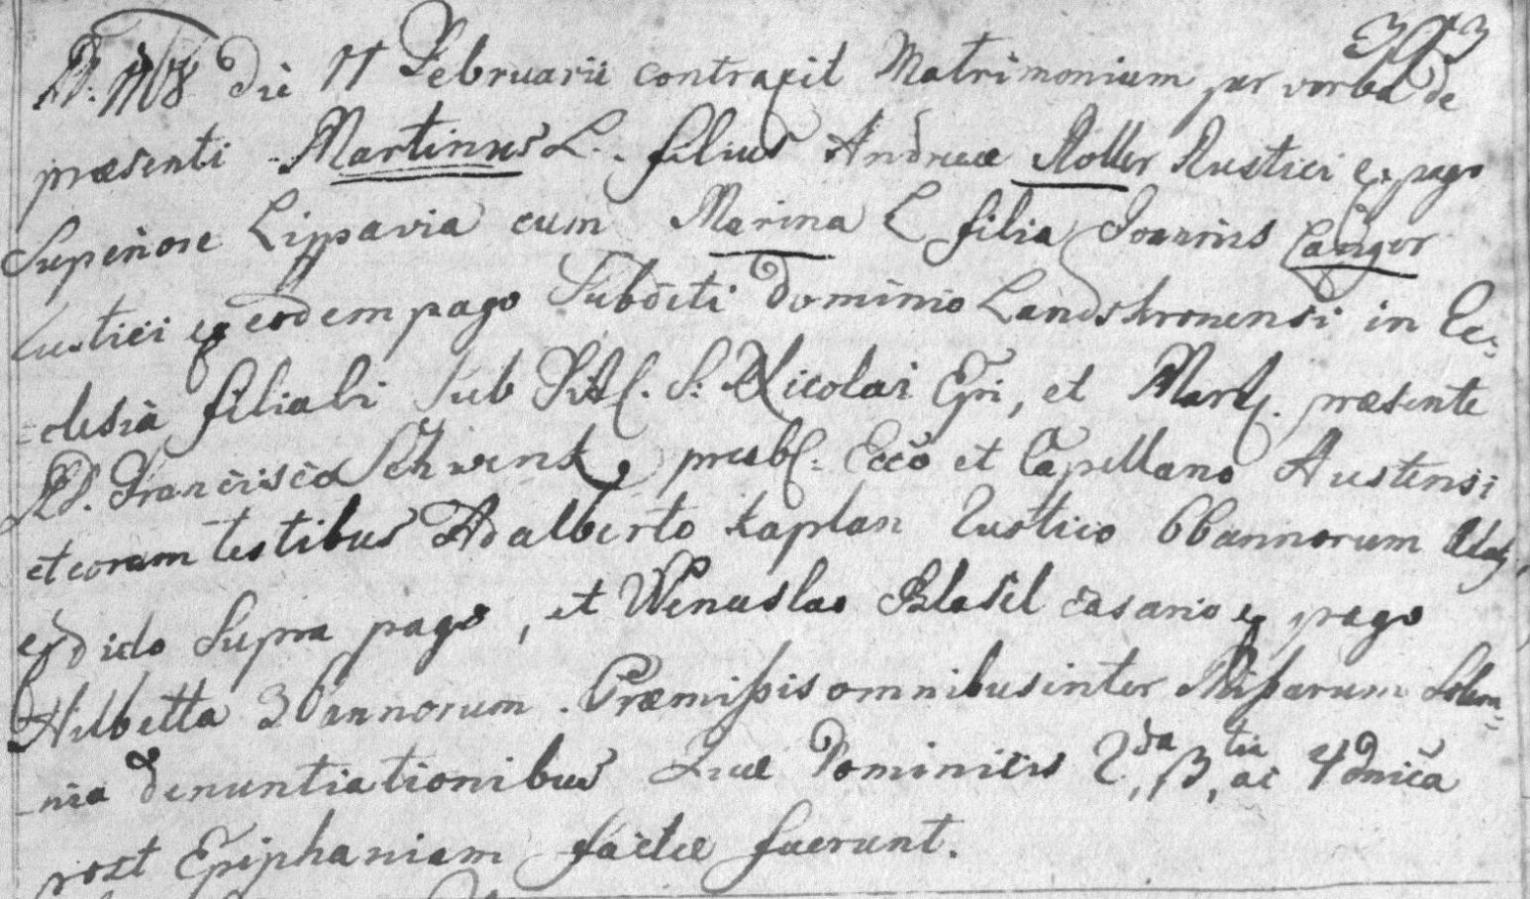 A. 1768 die 11 Februarii contraxit Matrimonium per verba de
præsenti Martinus L. filius Andreæ Roller Rustici ex pago
Superiore Lippavia cum Marina L filia Joannis Langer
Rustici ex eodem pago Subditi dominio Landskronensi in Ec-
-clesia filiali sub Tit. S: Nicolai Epi, et Mart. præsente
Francisco Schwenk presb. Ecco et Capellano Austensi
et coram testibus Adalberto Kaplan Rustico 66 annorum
ex dicto supra pago, et Wenceslao Blasel casario ex pago
Hilbetta 30 annorum. Præmissis omnibus inter Missarum Solem-
-nia denuntiationibus Quæ Dominicis 2da, 3tia, ac 4 Dnica
post Epiphaniam factæ fuerunt.